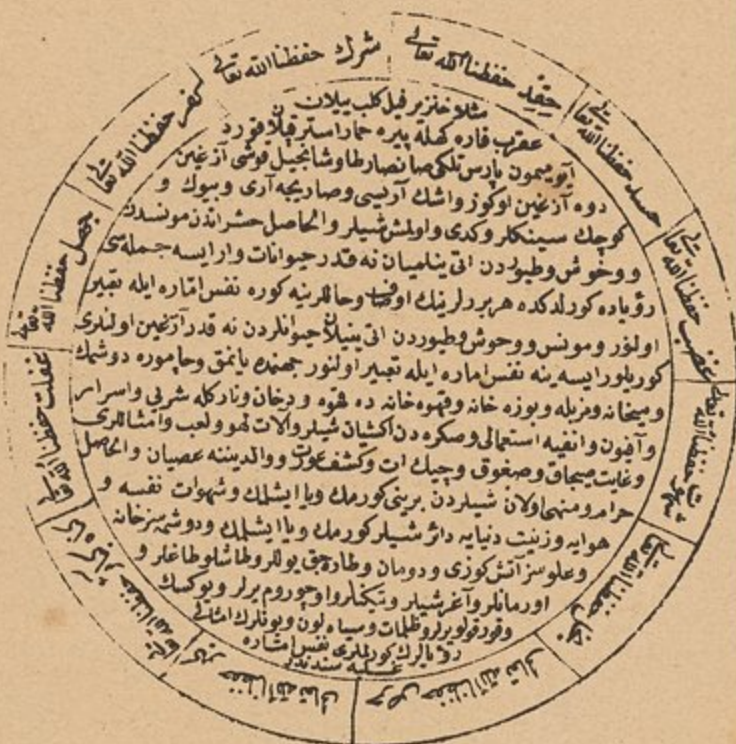 شرك حفظنا الله تعالى
حقد حفظنا الله تعالى
حسد حفظنا الله تعالى
غضب حفظنا الله تعالى
شهوت حفظنا الله تعالى
بخل حفظنا الله تعالى
حرص حفظنا الله تعالى
كبر حفظنا الله تعالى
كبائر حفظنا الله تعالى
غفلت حفظنا الله تعالى
جهل حفظنا الله تعالى
كفر حفظنا الله تعالى
مثلا خنزير فيل كلب ييلان
عقرب فاره كهله پيره حمار استر قپلان قورد
آيو ميمون پارس تلكى صانصار طاوشان چيل قوشى آزغين
دوه آزغين اوكوز واشك آريسى وصاريجه آرى وبيوك و
كوچك سينكلر وكدى واولمش شيلر والحاصل حشراتدن مونسدن
ووحوش وطيوردن اتى ينلميان نه قدر حيوانات وار ايسه جمله سى
رؤياده كورلدكده هر بردلرينك اوصاف وحاللرينه كوره نفس اماره ايله تعبير
اولنور ومونس ووحوش وطيوردن اتى ينيلان حيوانلردن نه قدر آزغين اولنلرى
كوريلور ايسه ينه نفس اماره ايله تعبير اولنور جهنمده يانمق وچاموره دوشمك
وميخانه ومزبله وبوزه خانه وقهوه خانه ده قهوه ودخان ونارکله شربى واسرار
وآفيون وانفيه استعمالى وصكره دن اكشيان شيلر وآلات لهو ولعب وامثاللرى
وغايت صيجاق وصغوق وچيك ات وكشف عورت ووالدينه عصيان والحاصل
حرام ومنهى اولان شيلردن برينى كورمك ويا ايشلمك وشهوات نفسه و
هوايه وزينت دنيايه دائر شيلر كورمك ويا ايشلمك ودوشمه سز خانه
وعلوسز آتش كوزى ودومان وطار چبق يوللر وطاشلو طاغلر و
اورمانلر وآغر شيلر وتيكنلر واوچوروم يرلر ويوكسك
وقورقولو يرلر وظلمات وسياه لون وبونلرك امثالى
رؤيالرك كورلملرى نفس امّاره
غلبه سندندر